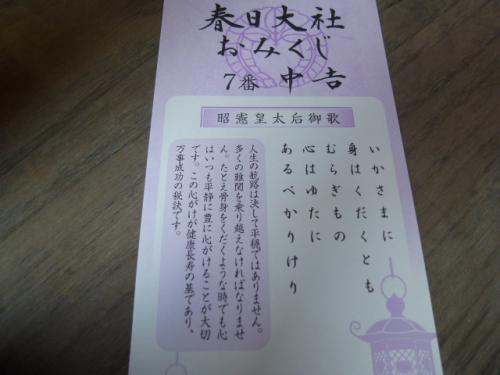 春日大社
おみくじ
7番 中吉
昭憲皇太后御歌
いかさまに
身はくだくとも
むらぎもの
心はゆたに
あるべかりけり
人生の航路は決して平穏ではありません。
多くの難関を乗り越えなければなりませ
ん。たとえ骨身をくだくような時でも心
はいつも平静に豊に心がけることが大切
です。この心がけが健康長寿の基であり、
万事成功の秘訣です。